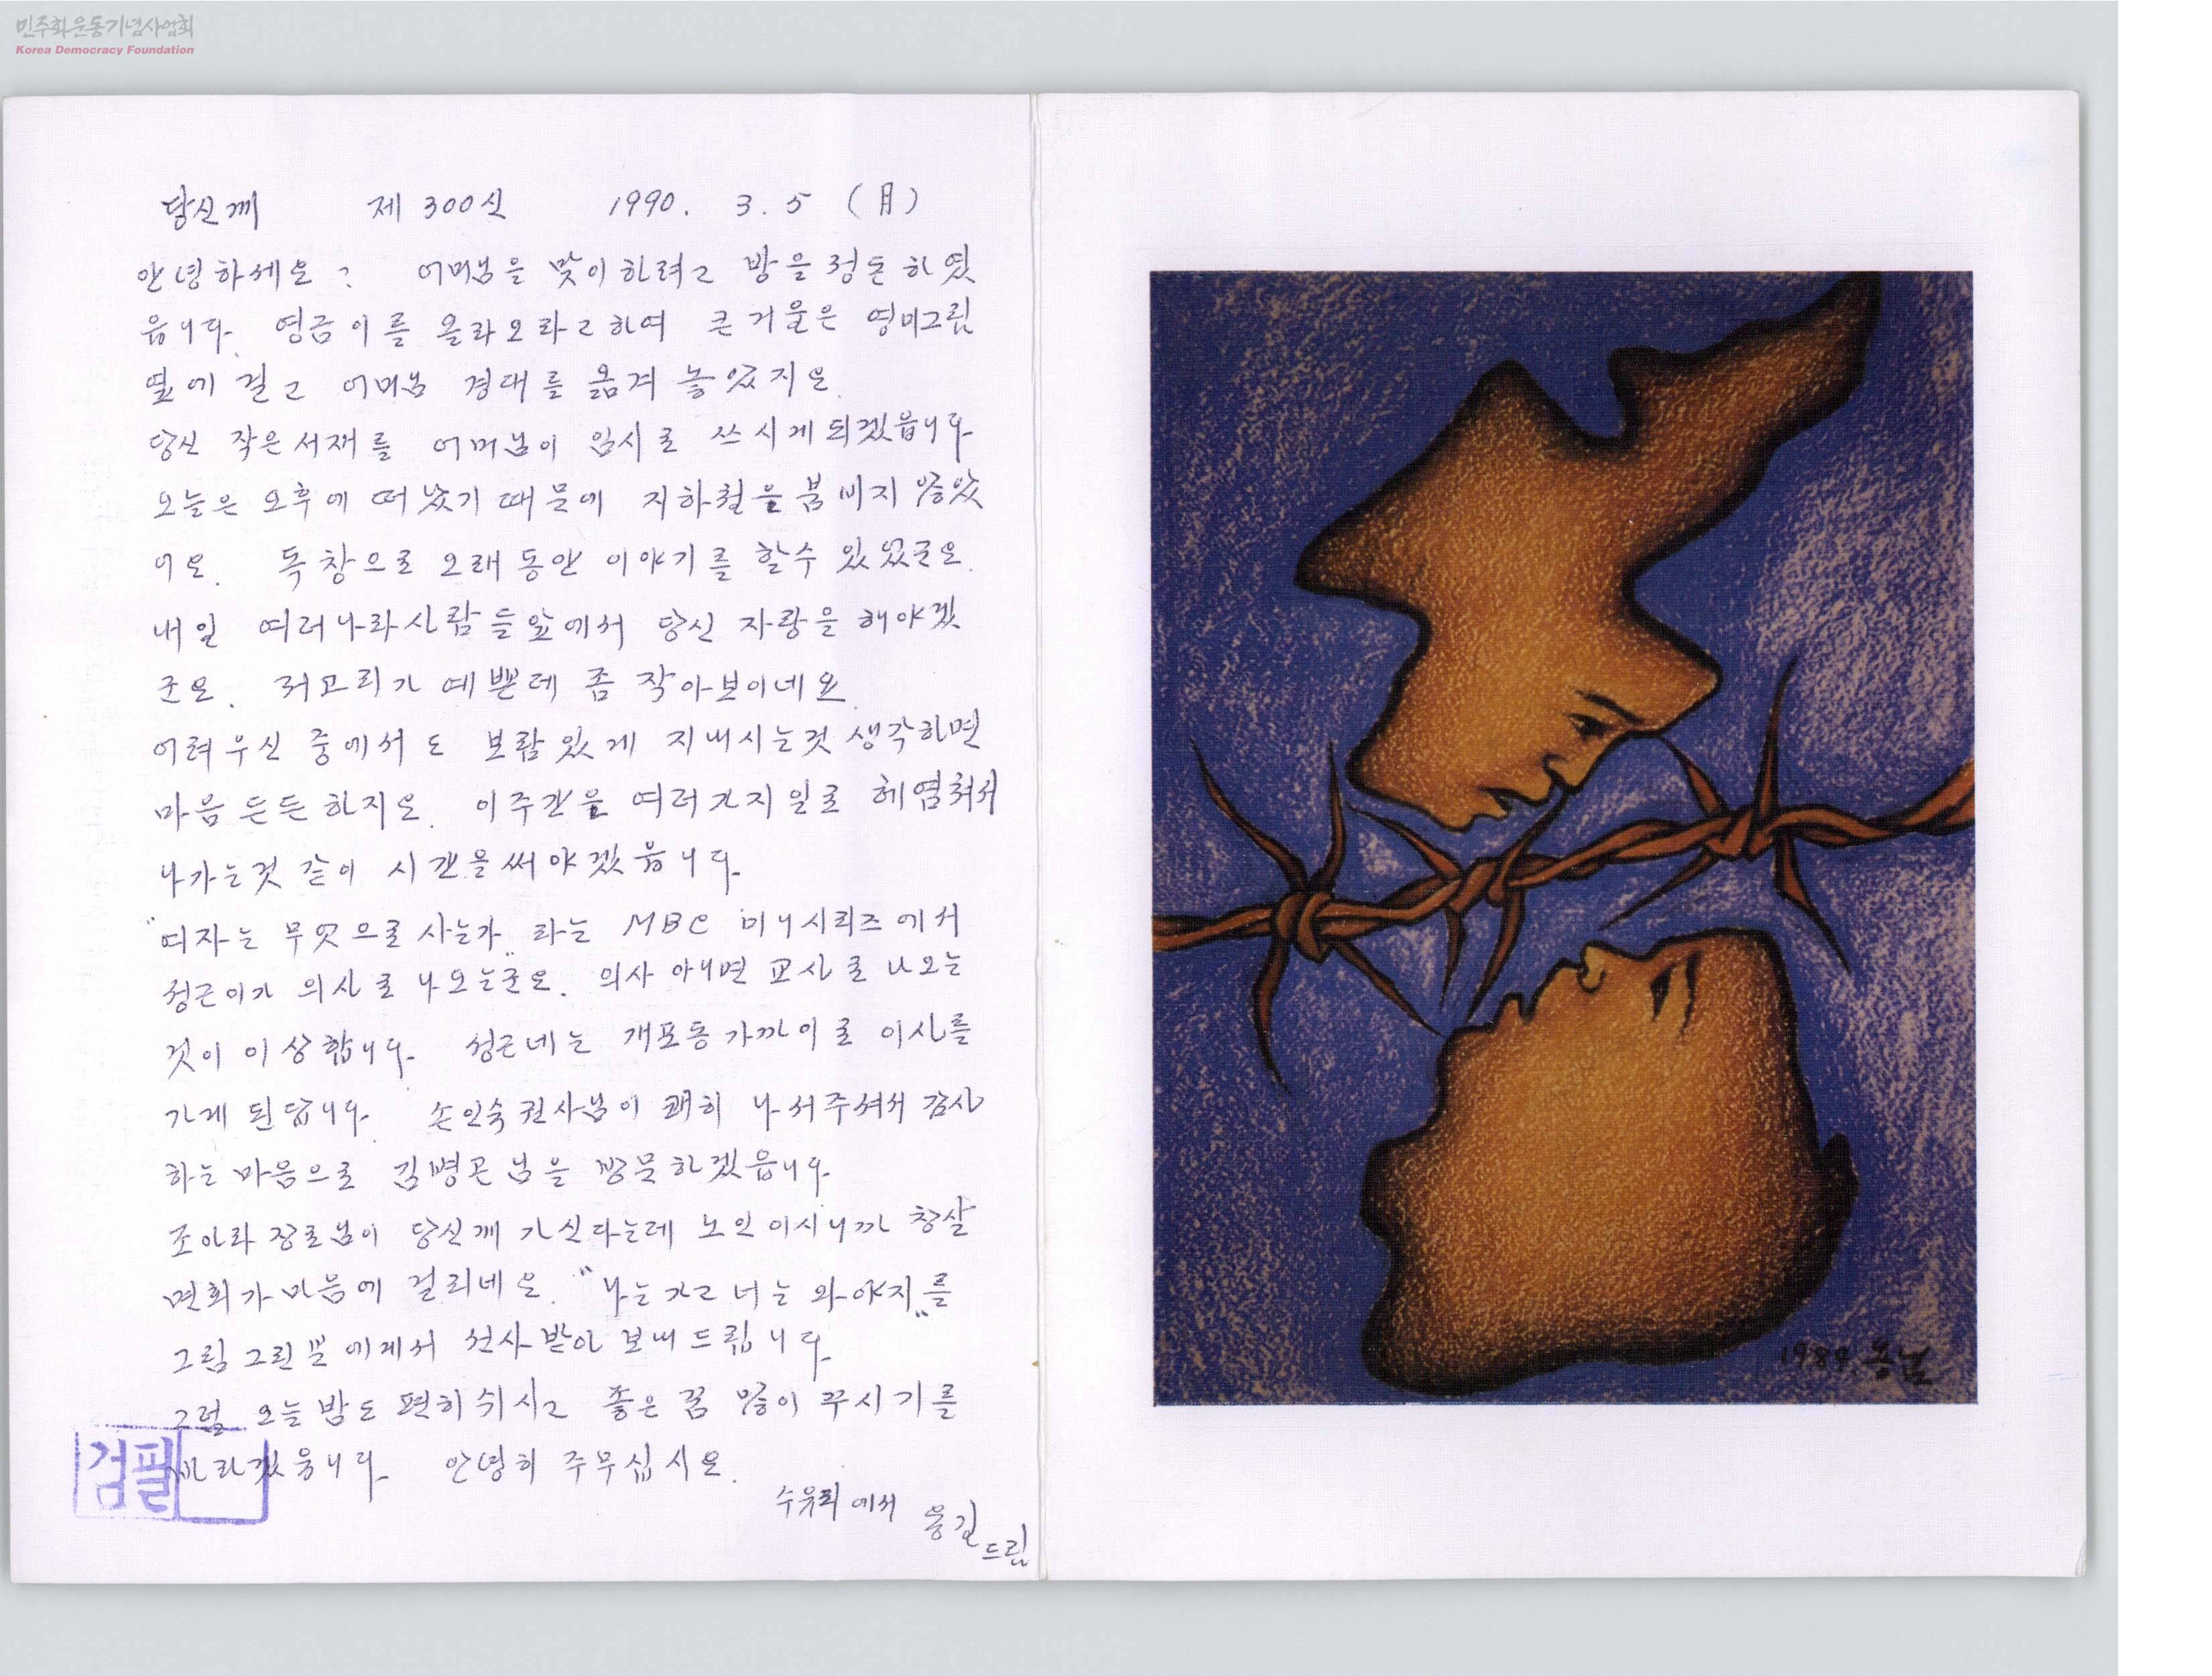 민주화운동기념사업회
Korea Democracy Foundation
당신께 제 300신 1990. 3. 5 (月)
안녕하세요? 어머님을 맞이하려고 방을 정돈하였
읍니다. 영금이를 올라오라고하여 큰 거울은 영미그림
옆에 걸고 어머님 경대를 옮겨 놓았지요.
당신 작은서재를 어머님이 임시로 쓰시게되겠읍니다.
오늘은 오후에 떠났기 때문에 지하철을 붐비지 않았
어요. 독창으로 오래동안 이야기를 할수 있었군요.
내일 여러나라사람들앞에서 당신 자랑을 해야겠
군요. 저고리가 예쁜데 좀 작아보이네요.
어려우신 중에서도 보람있게 지내시는것 생각하면
마음 든든하지요. 이주간을 여러가지일로 헤염쳐서
나가는것 같이 시간을 써야겠읍니다.
"여자는 무엇으로 사는가" 라는 MBC 미니시리즈에서
성근이가 의사로 나오는군요. 의사 아니면 교사로 나오는
것이 이상합니다. 성근네는 개포동 가까이로 이사를
가게 된답니다. 손인숙권사님이 쾌히 나서주셔서 감사
하는 마음으로 김병곤님을 방문하겠읍니다.
조아라 장로님이 당신께 가신다는데 노인이시니까 창살
면회가 마음에 걸리네요. "나는 가고 너는 와야지"를
그림 그린 분에게서 선사받아 보내드립니다.
그럼 오늘밤도 편히쉬시고 좋은 꿈 많이 꾸시기를
바라겠읍니다. 안녕히 주무십시오.
수유리에서 용길
드림
검필
1989.